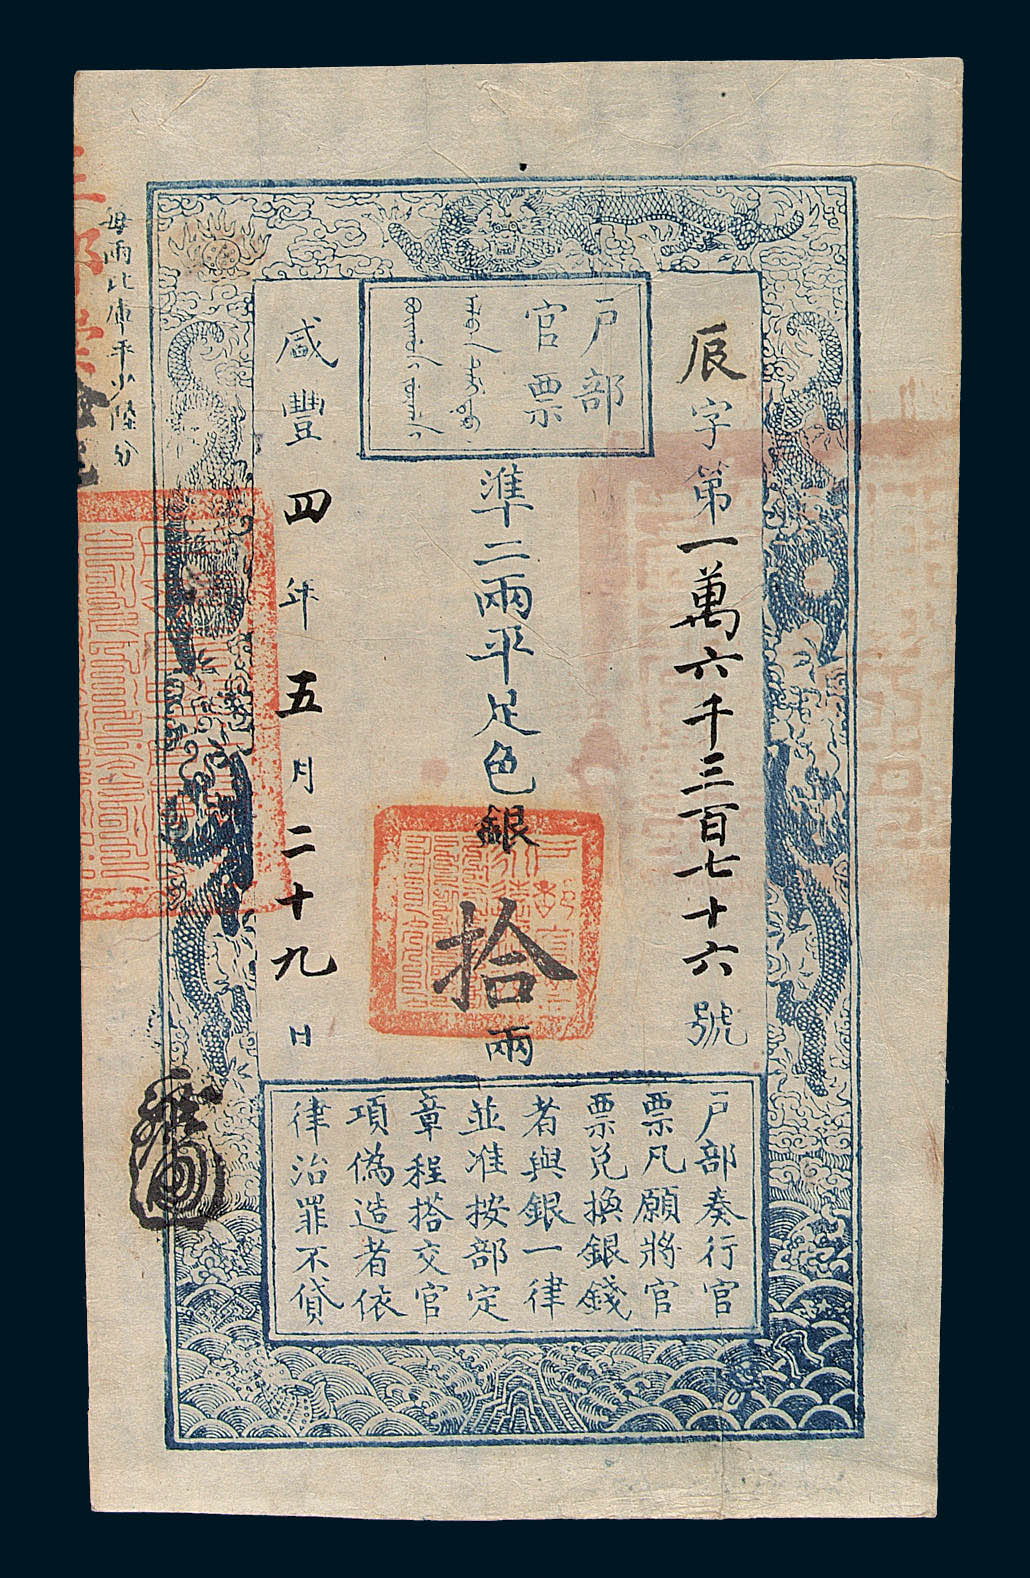 戶部
官票
辰字第一萬六千三百七十六號
準二兩平足色銀拾兩
咸豐四年五月二十九日
每兩比庫平少陸分
戶部奏行官
票凡願將官
票兑換銀錢
者與銀一律
並准按部定
章程搭交官
項偽造者依
律治罪不貸